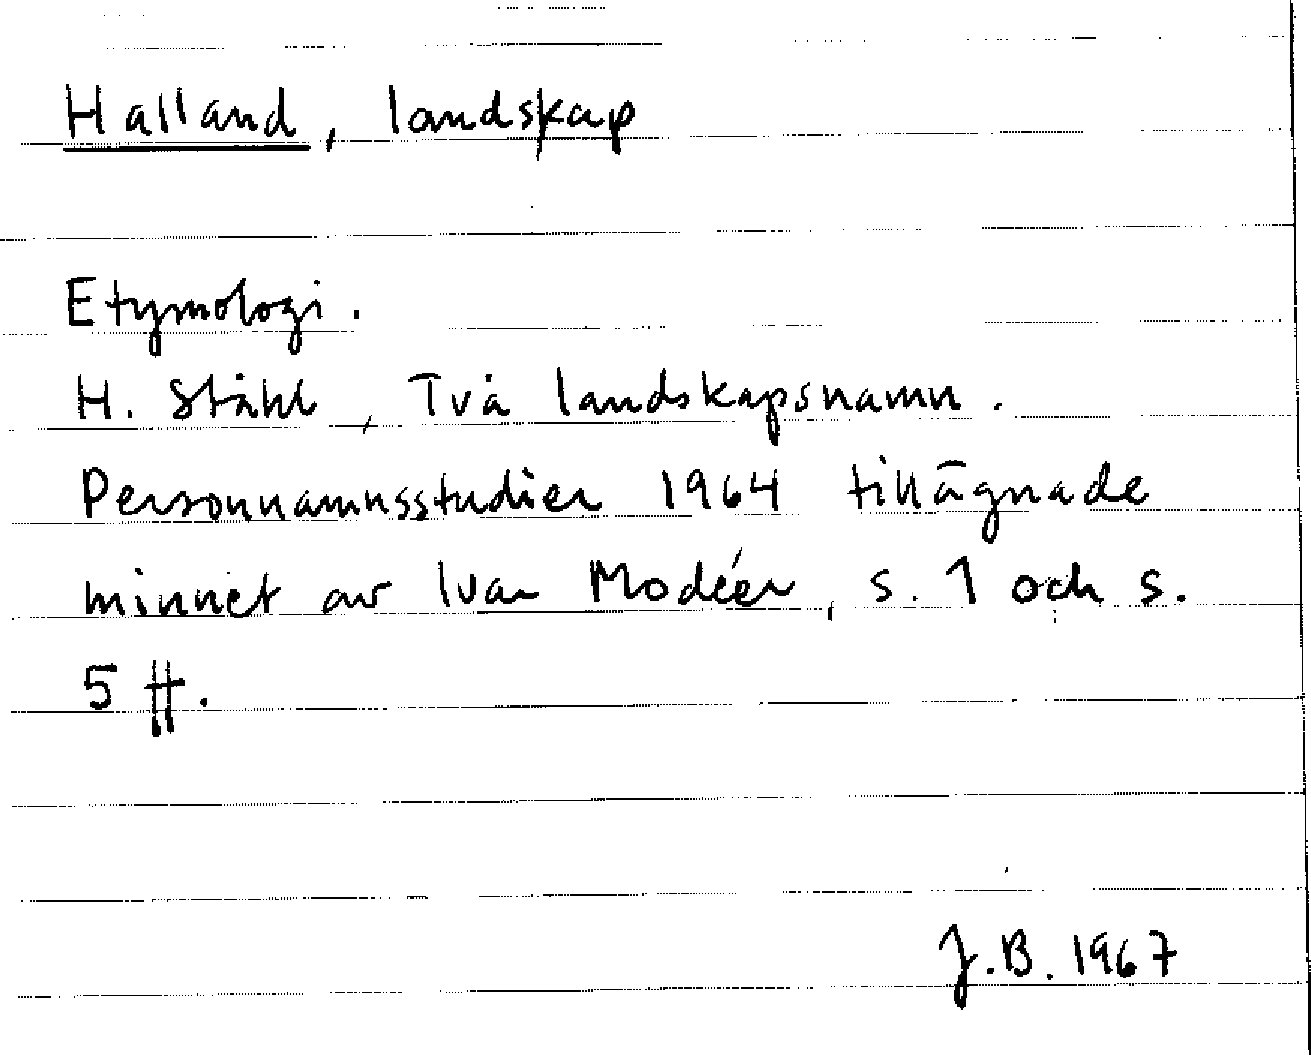 Halland, landskap
Etymologi.
H. Ståhl, Två landskapsnamn.
Personnamnsstudier 1964 tillägnade
minnet av Ivar Modéer, s. 1 och s.
5 ff.
J.B. 1967